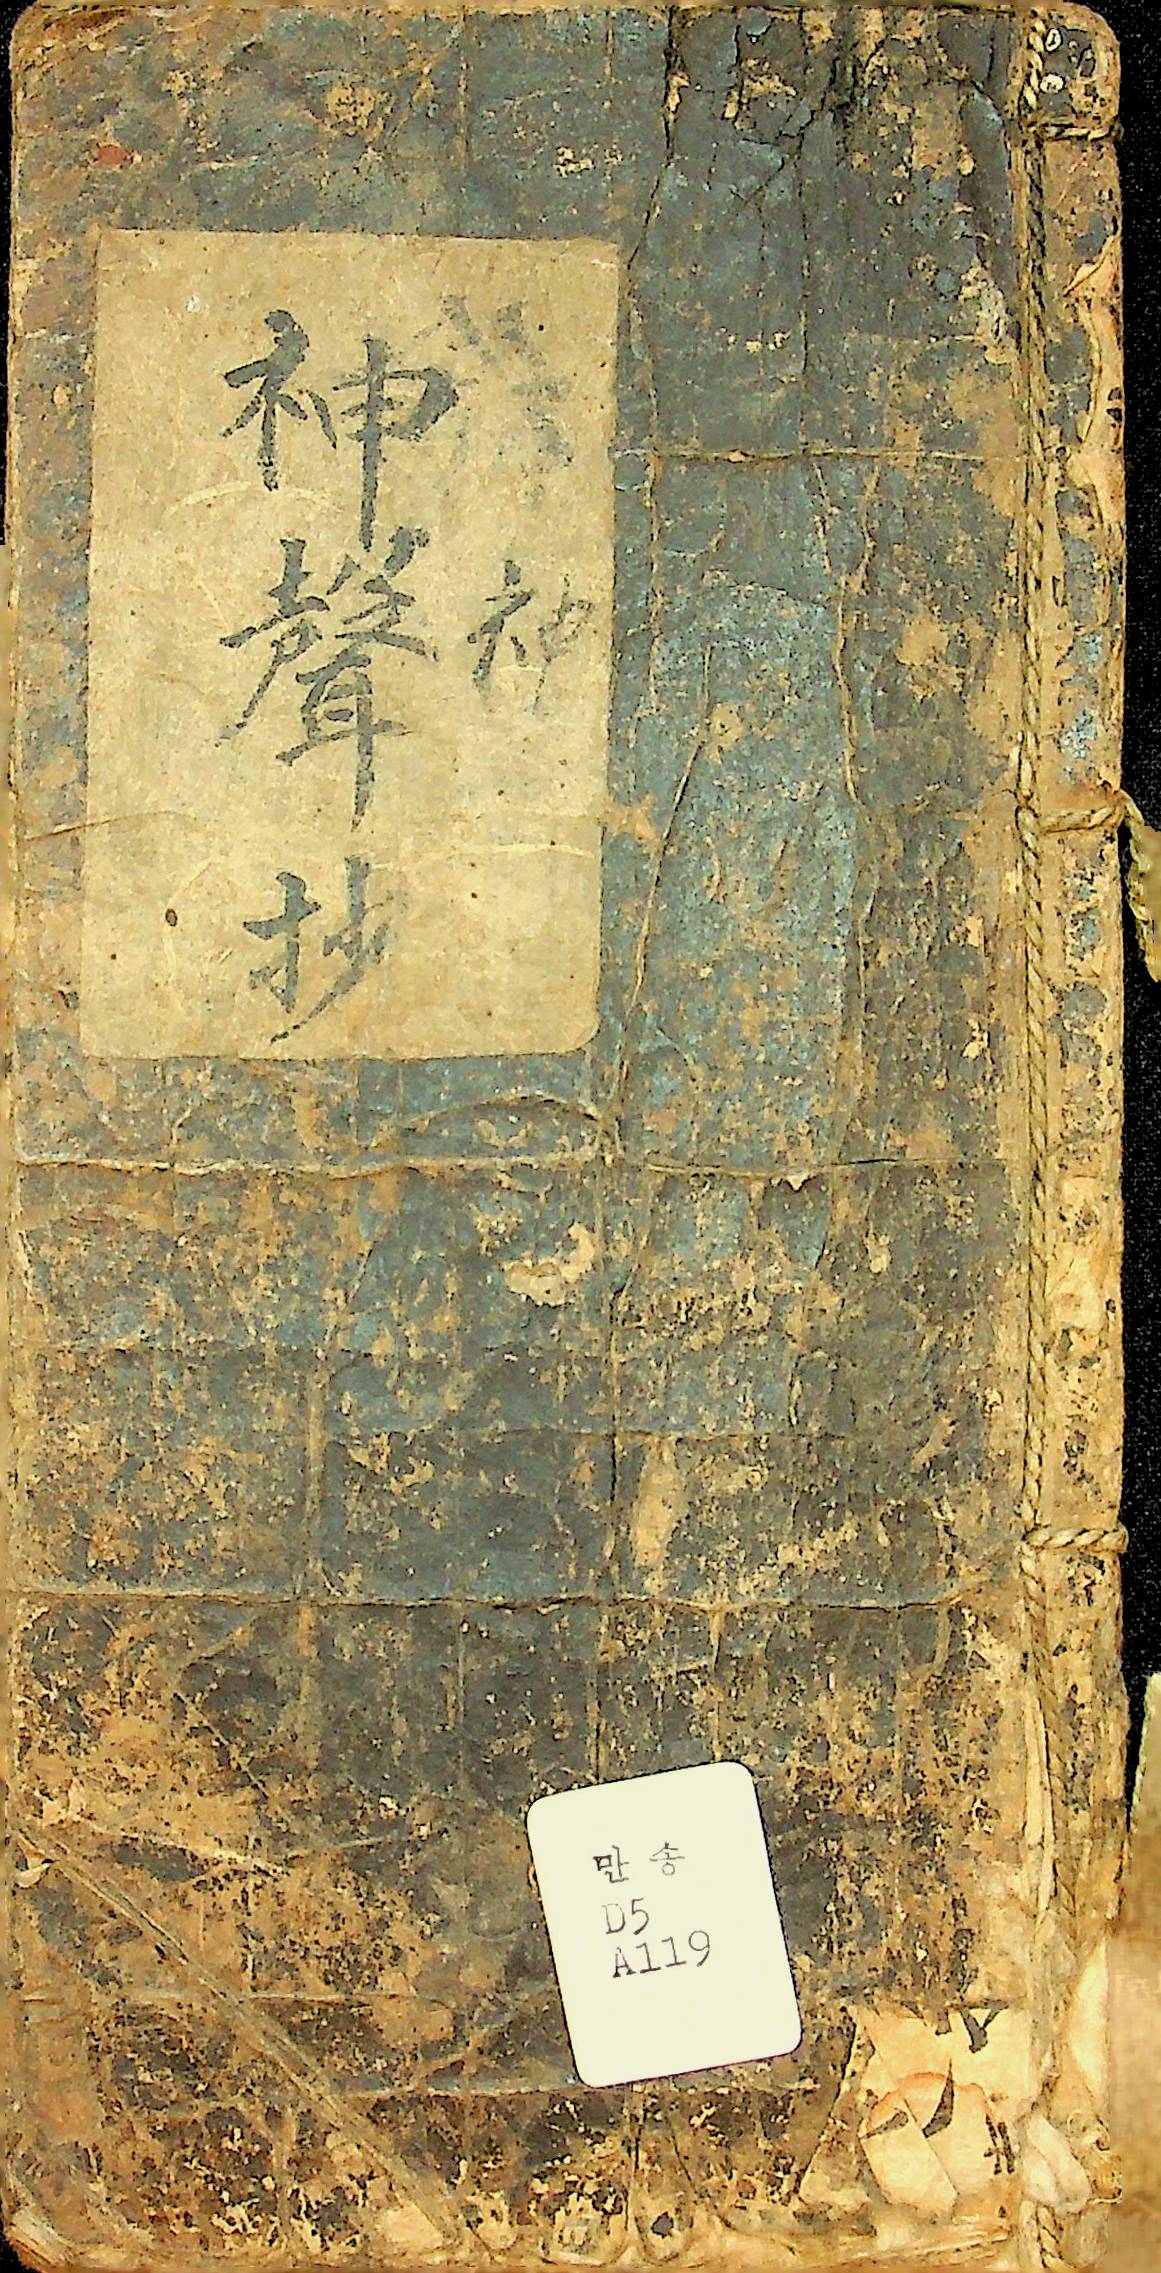 神聲抄
만송
D5
A119